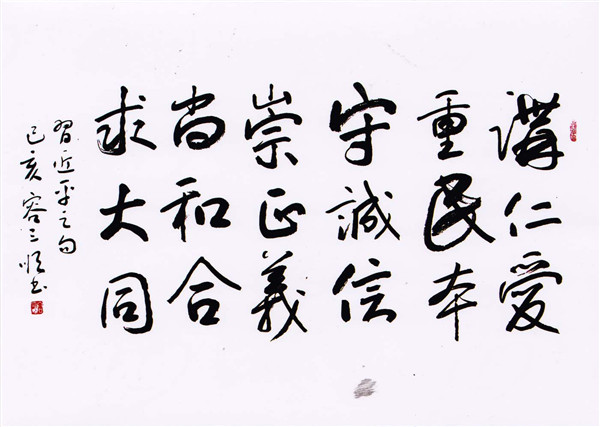 講仁愛
重民本
守誠信
崇正義
尚和合
求大同
習近平之句
己亥 容三順书